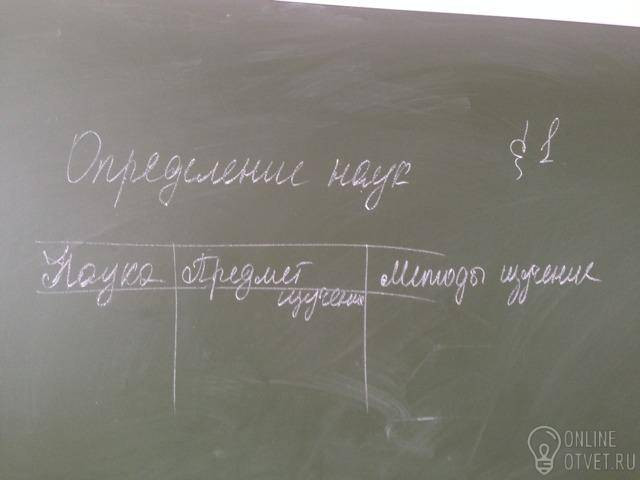 Определение наук § 1
Наука Предмет изучения Методы изучение
ONLINE
OTVET.RU